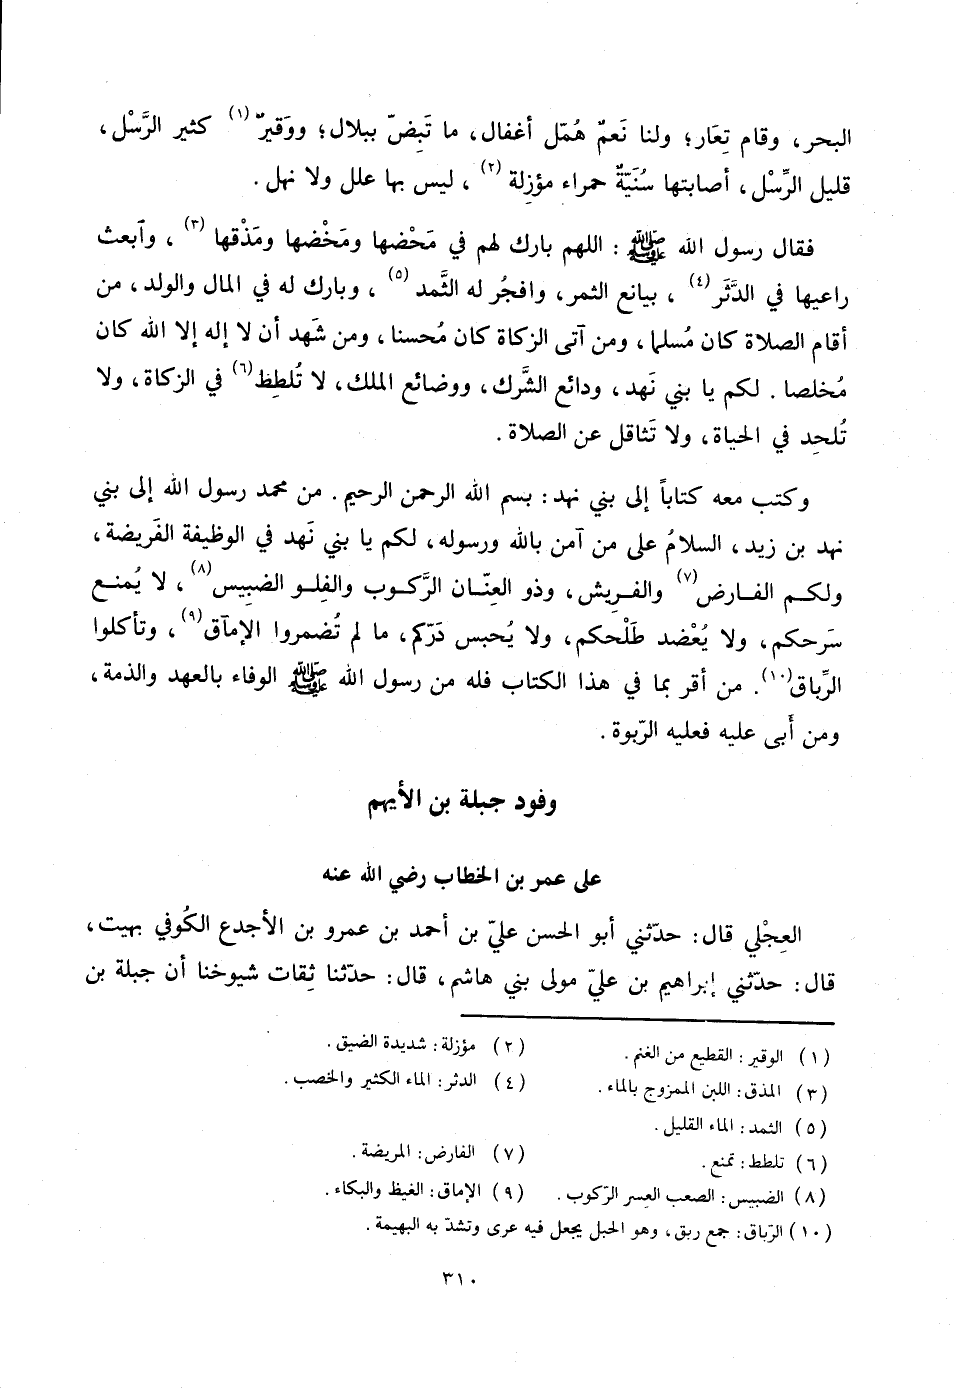 البحر، وقام تِعَار؛ ولنا نَعمٌ هُمّل أغفال، ما تَبِضّ ببلال؛ ووَقيرٌ (١) كثير الرَّسْل،
قليل الرِّسْل، أصابتها سُنَيَّةٌ حمراء مؤزِلة (٢)، ليس بها علل ولا نهل.
فقال رسول الله ﷺ : اللهم بارك لهم في مَحْضها ومَخْضها ومَذْقها (٣)، وٱبعث
راعيها في الدَّثَر (٤)، بيانع الثمر، وافجُر له الثَّمد (٥)، وبارك له في المال والولد، من
أقام الصلاة كان مُسلما، ومن آتى الزكاة كان مُحسنا، ومن شَهد أن لا إله إلا الله كان
مُخلصا. لكم يا بني نَهد، ودائع الشِّرك، ووضائع الملك، لا تُلطِط (٦) في الزكاة، ولا
تُلحِد في الحياة، ولا تَثاقل عن الصلاة.
وكتب معه كتاباً إلى بني نهد: بسم الله الرحمن الرحيم. من محمد رسول الله إلى بني
نهد بن زيد، السلامُ على من آمن بالله ورسوله، لكم يا بني نَهد في الوظيفة الفَريضة،
ولكم الفارض (٧) والفريش، وذو العِنّان الرَّكوب والفِلو الضبيس (٨)، لا يُمنع
سَرحكم، ولا يُعْضد طَلْحكم، ولا يُحبس دَرّكم، ما لم تُضمروا الإمآق (٩)، وتأكلوا
الرِّباق (١٠). من أقر بما في هذا الكتاب فله من رسول الله ﷺ الوفاء بالعهد والذمة،
ومن أَبى عليه فعليه الرّبوة.
وفود جبلة بن الأيهم
على عمر بن الخطاب رضي الله عنه
العِجْلي قال: حدّثني أبو الحسن عليّ بن أحمد بن عمرو بن الأجدع الكُوفي بهيت،
قال: حدّثني إبراهيم بن عليّ مولى بني هاشم، قال: حدّثنا ثِقات شيوخنا أن جبلة بن
(١) الوقير: القطيع من الغنم. (٢) مؤزلة: شديدة الضيق.
(٣) المذق: اللبن الممزوج بالماء. (٤) الدثر: الماء الكثير والخصب.
(٥) الثمد: الماء القليل.
(٦) تلطط: تمنع. (٧) الفارض: المريضة.
(٨) الضبيس: الصعب العسر الرّكوب. (٩) الإماق: الغيظ والبكاء.
(١٠) الرّباق: جمع ربق، وهو الحبل يجعل فيه عرى وتشدّ به البهيمة.
٣١٠